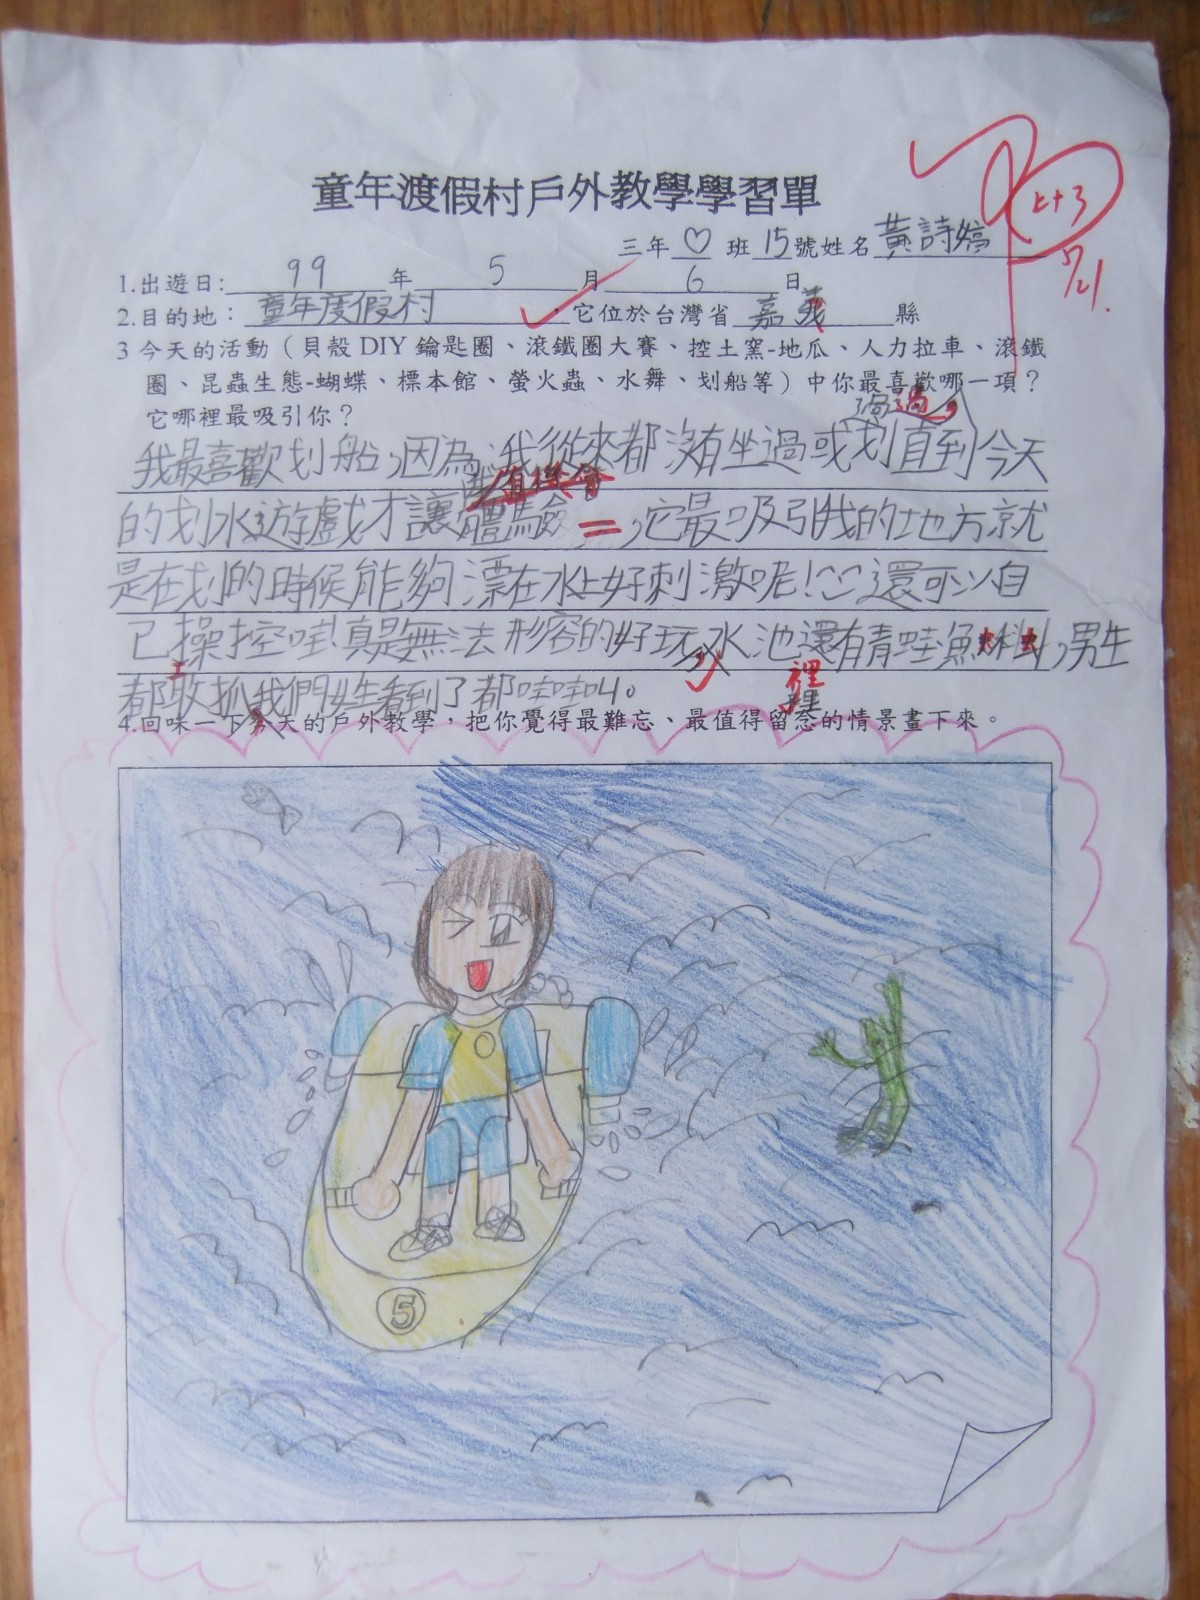 童年渡假村戶外教學學習單
三年♡班15號姓名黃詩婷
1.出遊日:99年5月6日
2.目的地：童年度假村，它位於台灣省嘉義縣
3 今天的活動（貝殼 DIY 鑰匙圈、滾鐵圈大賽、控土窯-地瓜、人力拉車、滾鐵
圈、昆蟲生態-蝴蝶、標本館、螢火蟲、水舞、划船等）中你最喜歡哪一項？
它哪裡最吸引你？
過過，
我最喜歡划船,因為,我從來都沒有坐過或划直到今天
我有機會
的划水遊戲才讓體驗,它最吸引我的地方就
是在划的時候能夠漂在水上好刺激呢!還可以自
己操控哇!真是無法形容的好玩水池還有青蛙魚蝌蚪,男生
裡
裡
都敢抓我們女生看到了都哇哇叫。
4.回味一下今天的戶外教學，把你覺得最難忘、最值得留念的情景畫下來。
5